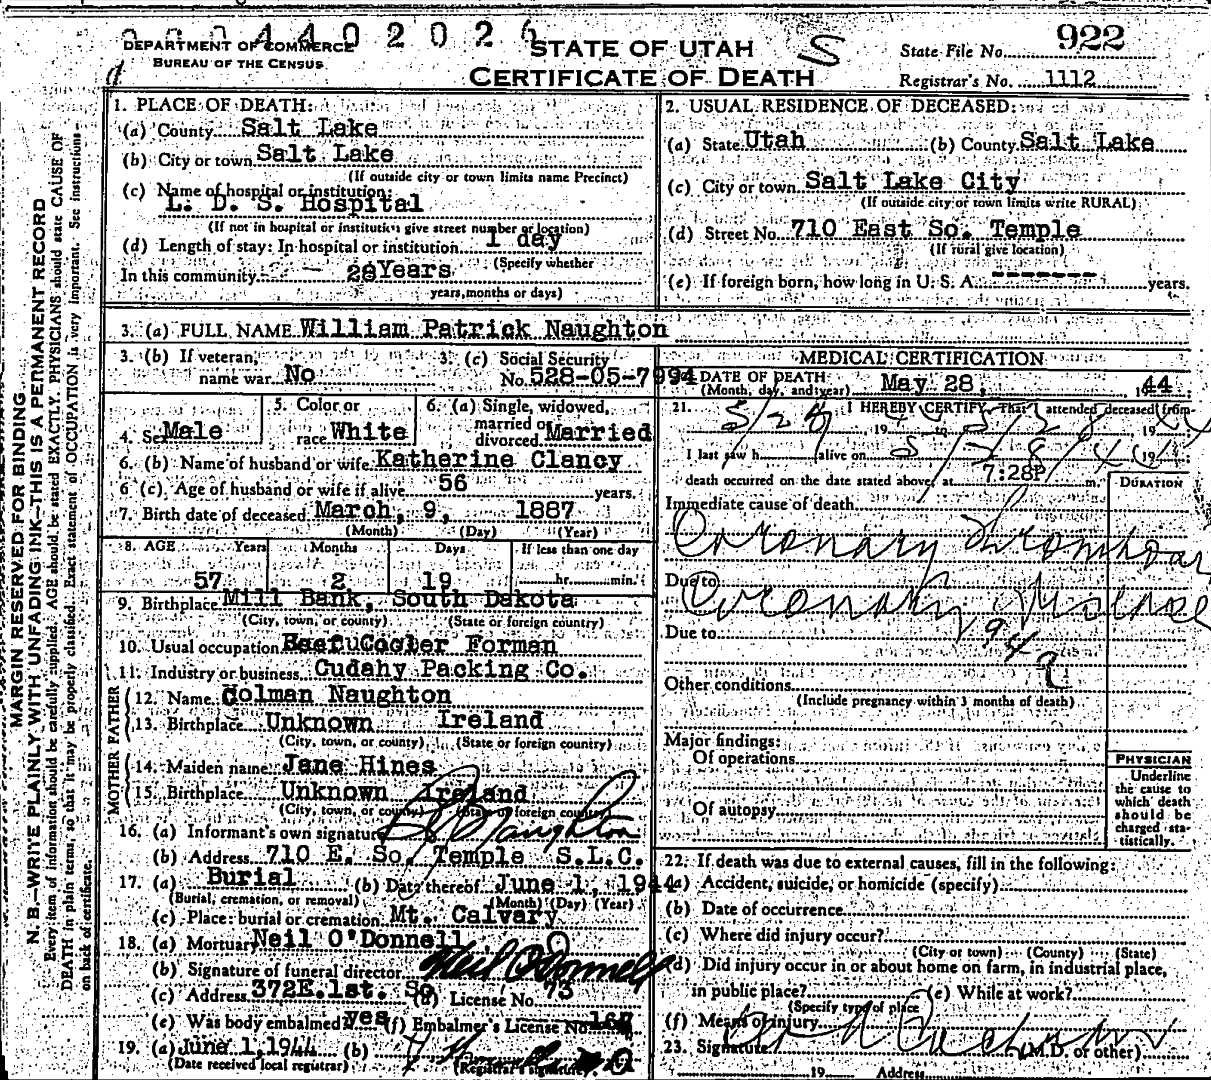 0004402026
DEPARTMENT OF COMMERCE
BUREAU OF THE CENSUS
STATE OF UTAH
CERTIFICATE OF DEATH
S
State File No. 922
Registrar's No. 1112
MARGIN RESERVED FOR BINDING.
N. B.—WRITE PLAINLY WITH UNFADING INK—THIS IS A PERMANENT RECORD
Every item of information should be carefully supplied. AGE should be stated EXACTLY. PHYSICIANS should state CAUSE OF
DEATH in plain terms, so that it may be properly classified. Exact statement of OCCUPATION is very important. See instructions
on back of certificate.
1. PLACE OF DEATH:
(a) County Salt Lake
(b) City or town Salt Lake
(If outside city or town limits name Precinct)
(c) Name of hospital or institution:
L. D. S. Hospital
(If not in hospital or institution give street number or location)
(d) Length of stay: In hospital or institution 1 day
(Specify whether
In this community 28 Years
years, months or days)
2. USUAL RESIDENCE OF DECEASED:
(a) State Utah (b) County Salt Lake
(c) City or town Salt Lake City
(If outside city or town limits write RURAL)
(d) Street No. 710 East So. Temple
(If rural give location)
(e) If foreign born, how long in U. S. A. ------- years.
3. (a) FULL NAME William Patrick Naughton
3. (b) If veteran, name war No
3. (c) Social Security No. 528-05-7994
4. Sex Male
5. Color or race White
6. (a) Single, widowed, married or divorced Married
6. (b) Name of husband or wife Katherine Clancy
6 (c). Age of husband or wife if alive 56 years.
7. Birth date of deceased March, 9, 1887
(Month) (Day) (Year)
8. AGE Years Months Days If less than one day
57 2 19 hr. min.
9. Birthplace Mill Bank, South Dakota
(City, town, or county) (State or foreign country)
10. Usual occupation Beef Cooler Forman
11. Industry or business Cudahy Packing Co.
FATHER
12. Name Colman Naughton
13. Birthplace Unknown Ireland
(City, town, or county) (State or foreign country)
MOTHER
14. Maiden name Jane Hines
15. Birthplace Unknown Ireland
(City, town, or county) (State or foreign country)
16. (a) Informant's own signature Naughton
(b) Address 710 E. So. Temple S.L.C.
17. (a) Burial (b) Date thereof June 1, 1944
(Burial, cremation, or removal) (Month) (Day) (Year)
(c) Place: burial or cremation Mt. Calvary
18. (a) Mortuary Neil O'Donnell
(b) Signature of funeral director Neil O'Donnell
(c) Address 372E.1st. So (d) License No. 73
(e) Was body embalmed yes (f) Embalmer's License No.
19. (a) June 1, 1944 (b)
(Date received local registrar) (Registrar's signature)
MEDICAL CERTIFICATION
20. DATE OF DEATH May 28, 1944
(Month, day, and year)
21. I HEREBY CERTIFY, That I attended deceased from
5/28 19 44 to 5/28 19 44
I last saw h alive on 5/28/44 19
death occurred on the date stated above, at 7:28P m.
DURATION
Immediate cause of death
Coronary Thrombosis
Due to Coronary
Due to
94
a
Other conditions
(Include pregnancy within 3 months of death)
Major findings:
Of operations
Of autopsy
PHYSICIAN
Underline
the cause to
which death
should be
charged sta-
tistically.
22. If death was due to external causes, fill in the following:
(a) Accident, suicide, or homicide (specify)
(b) Date of occurrence
(c) Where did injury occur?
(City or town) (County) (State)
(d) Did injury occur in or about home on farm, in industrial place,
in public place? (e) While at work?
(Specify type of place
(f) Means of injury
23. Signature (M.D. or other)
19 Address